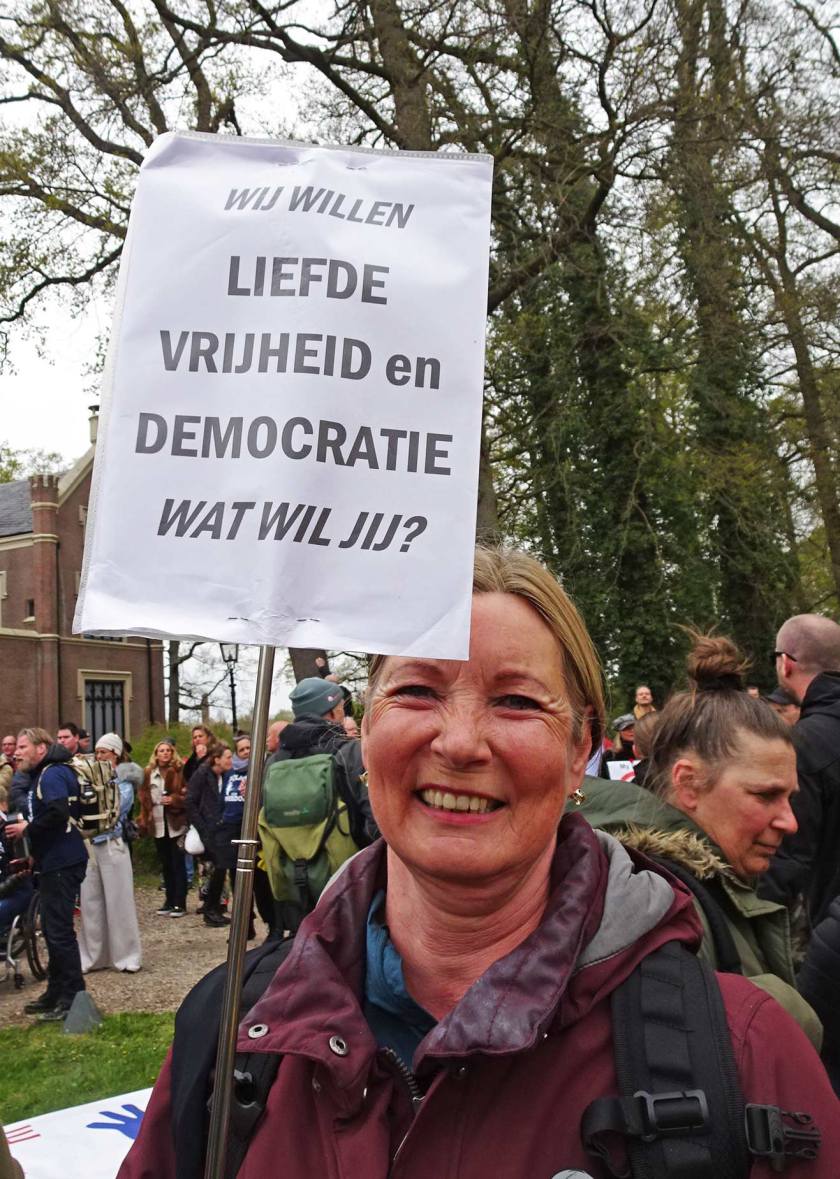 WIJ WILLEN
LIEFDE
VRIJHEID en
DEMOCRATIE
WAT WIL JIJ?